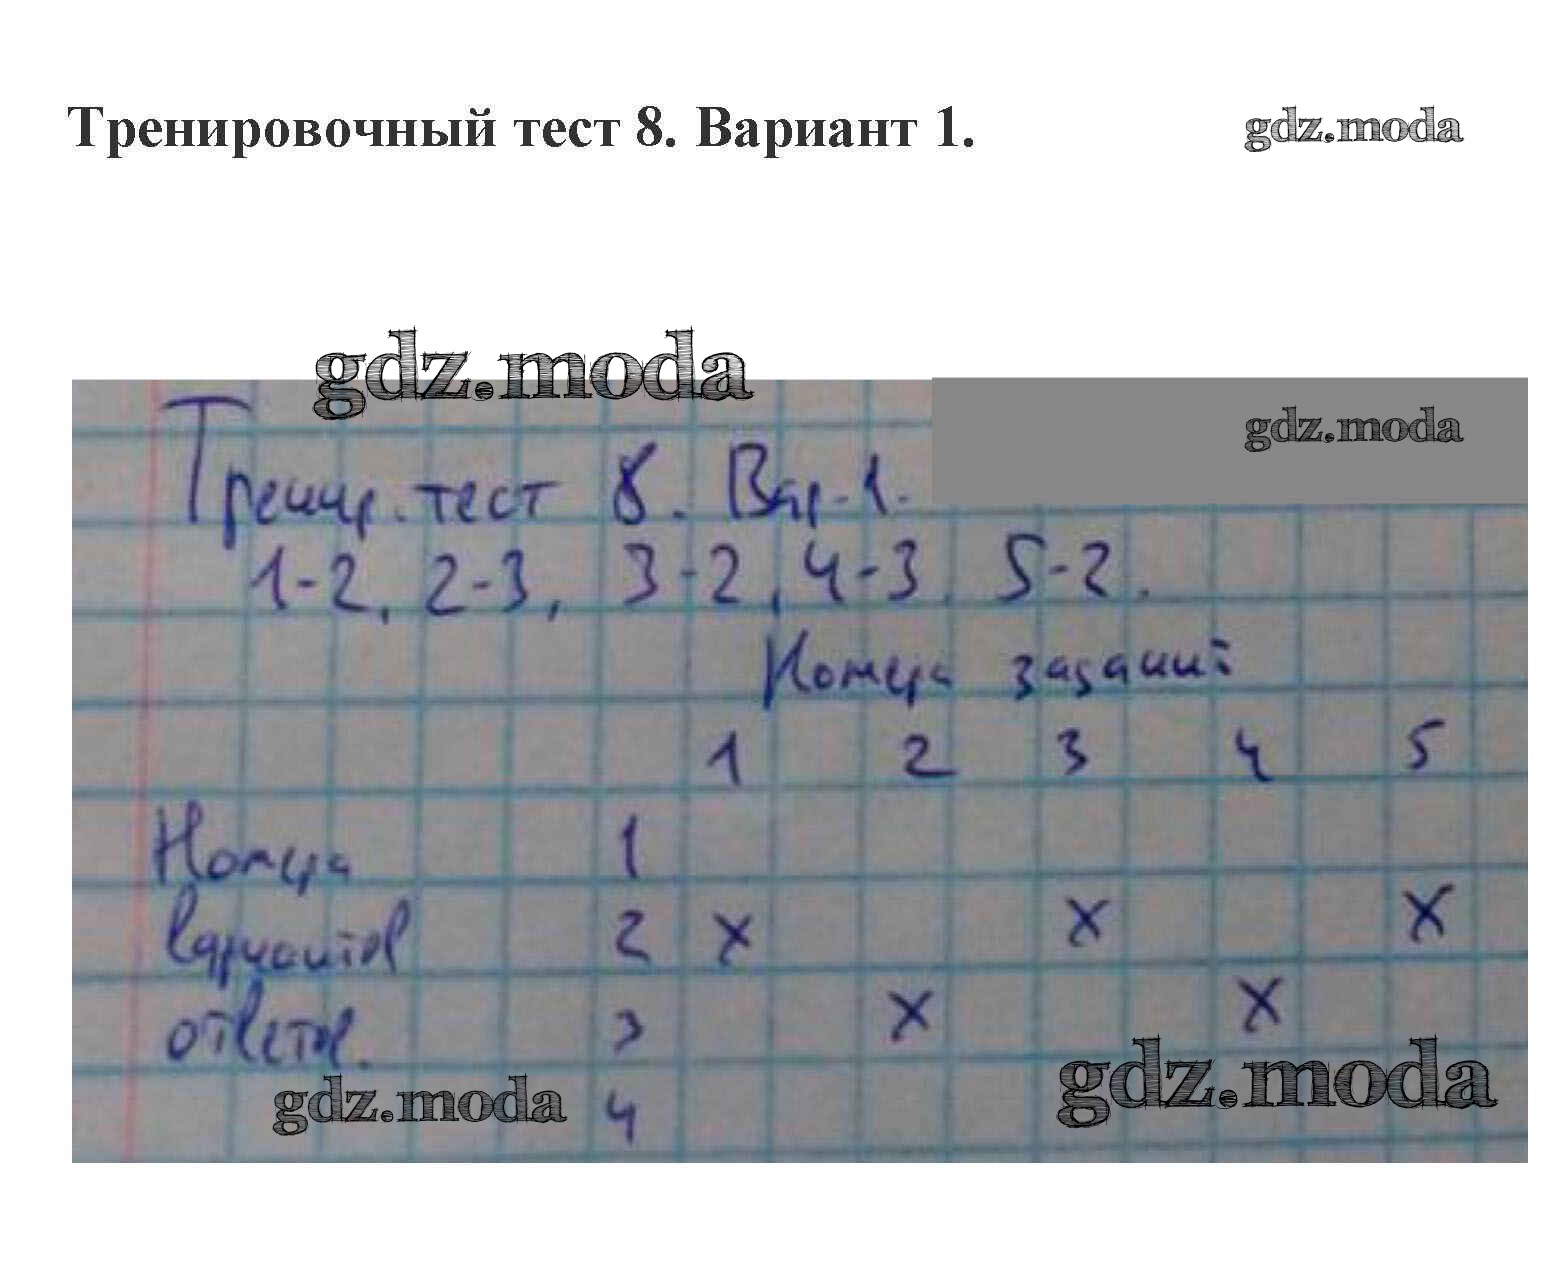 Тренировочный тест 8. Вариант 1.
gdz.moda
gdz.moda
gdz.moda
Тренир. тест 8. Вар. 1.
1-2, 2-3, 3-2, 4-3, 5-2.
Номера заданий
1 2 3 4 5
Номера 1
вариантов 2 х х х
ответов. 3 х х
gdz.moda
gdz.moda 4